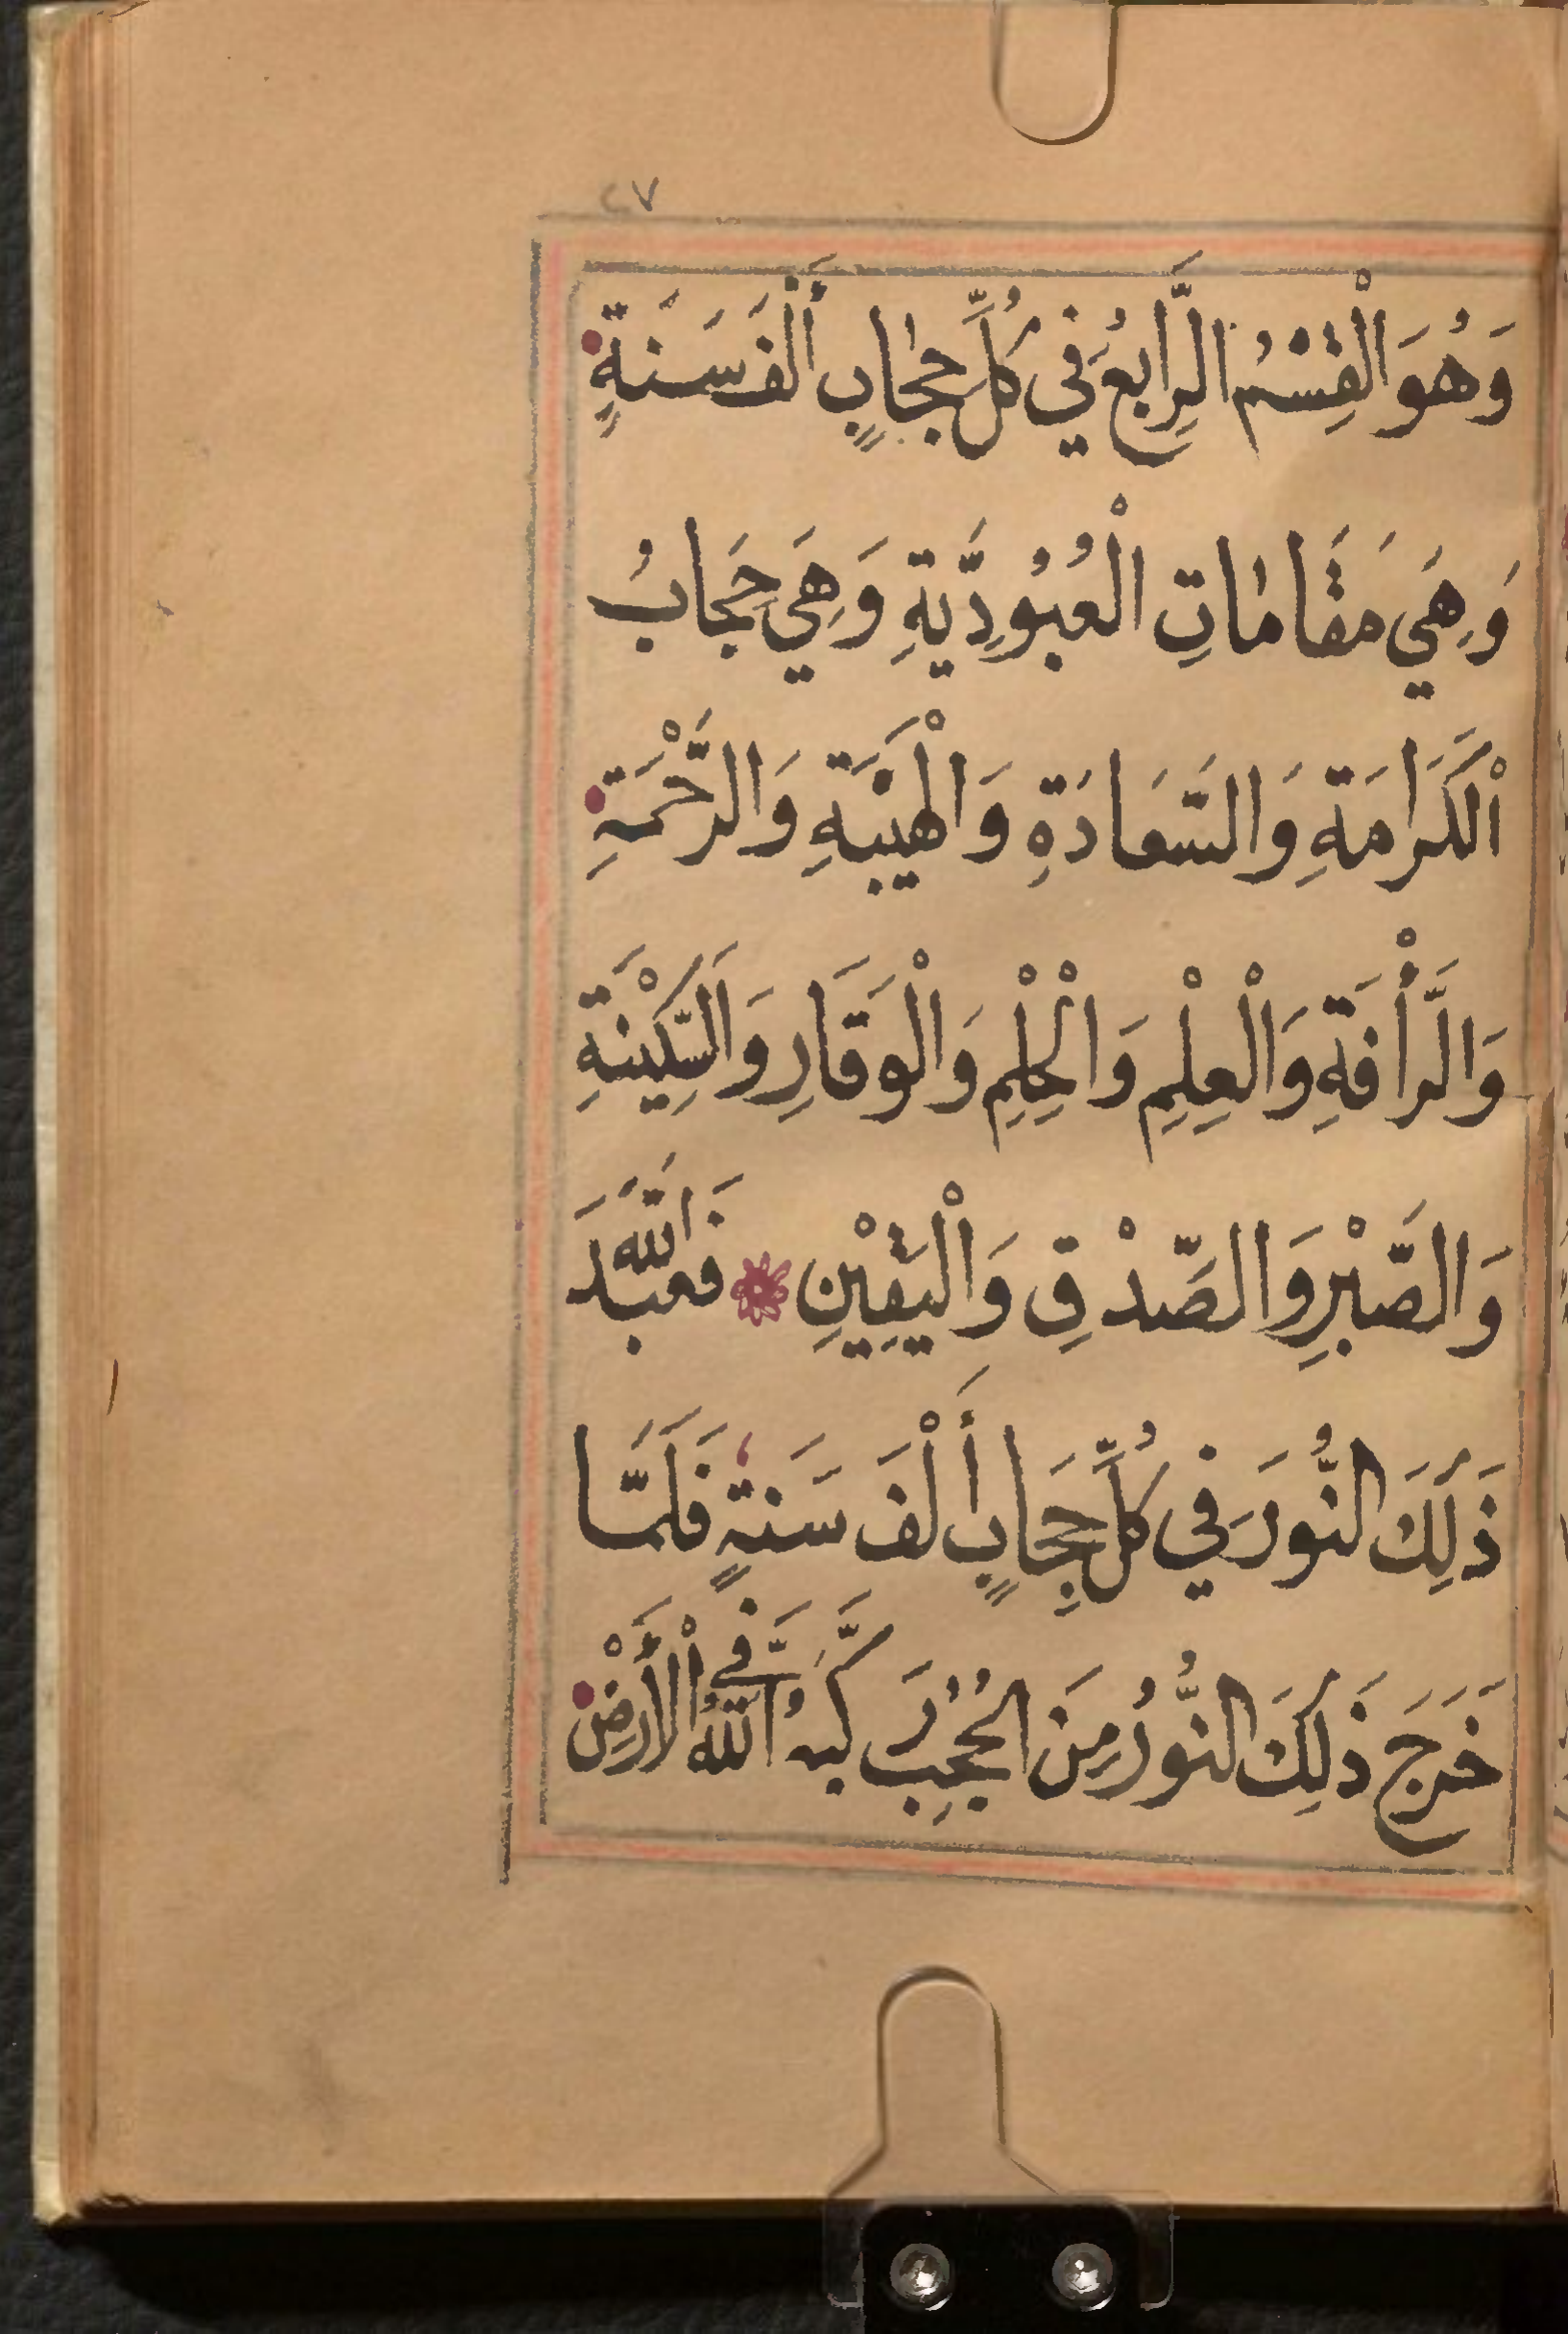 ٢٧
وَهُوَ الْقِسْمُ الرَّابِعُ فِي كُلِّ حِجَابٍ أَلْفَ سَنَةٍ
وَهِيَ مَقَامَاتِ الْعُبُودِيَّةِ وَهِيَ حِجَابُ
الْكَرَامَةِ وَالسَّعَادَةِ وَالْهَيْبَةِ وَالرَّحْمَةِ
وَالرَّأْفَةِ وَالْعِلْمِ وَالْحِلْمِ وَالْوَقَارِ وَالسَّكِيْنَةِ
وَالصَّبْرِ وَالصِّدْقِ وَالْيَقِيْنِ فَعَبَدَ اللّٰهَ
ذَلِكَ النُّورَ فِي كُلِّ حِجَابٍ أَلْفَ سَنَةٍ فَلَمَّا
خَرَجَ ذَلِكَ النُّورُ مِنَ الْحُجُبِ رَكَّبَهُ اللّٰهُ فِي الْأَرْضِ